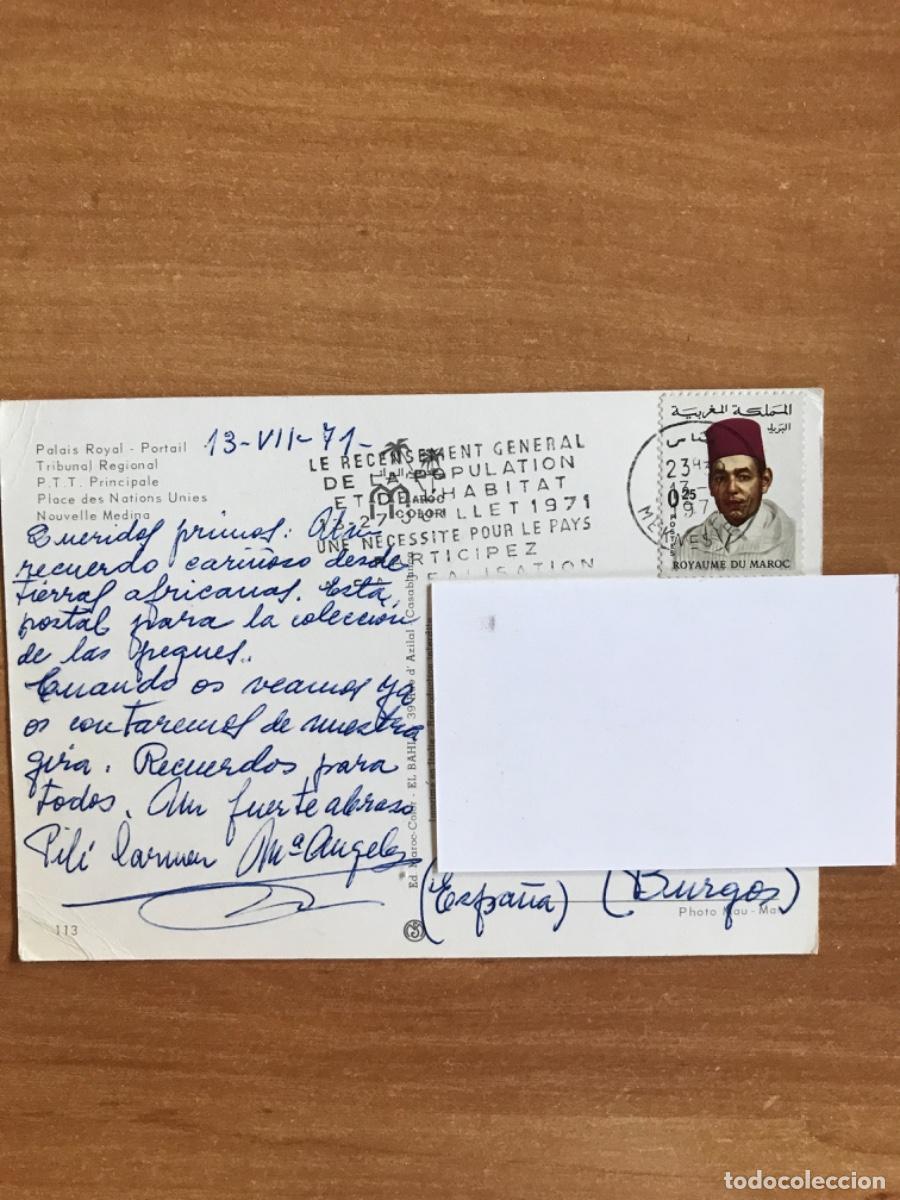 Palais Royal - Portail
Tribunal Regional
P.T.T. Principale
Place des Nations Unies
Nouvelle Medina
13-VII-71-
Queridos primos: Un
recuerdo cariñoso desde
tierras africanas. Esta
postal para la colección
de las peques.
Cuando os veamos ya
os contaremos de nuestra
gira. Recuerdos para
todos. Un fuerte abrazo
Pili Carmen Mª Angeles
113
LE RECENSEMENT GENERAL
DE LA POPULATION
ET DE L'HABITAT
JUILLET 1971
UNE NECESSITE POUR LE PAYS
MAROC
COLOR
Ed. Maroc-Color - EL BAHI
39 Rue d'Azilal - Casablanca
المملكة المغربية
البريد
23
0.25
ROYAUME DU MAROC
(España) (Burgos)
Photo Mau-Ma
todocoleccion